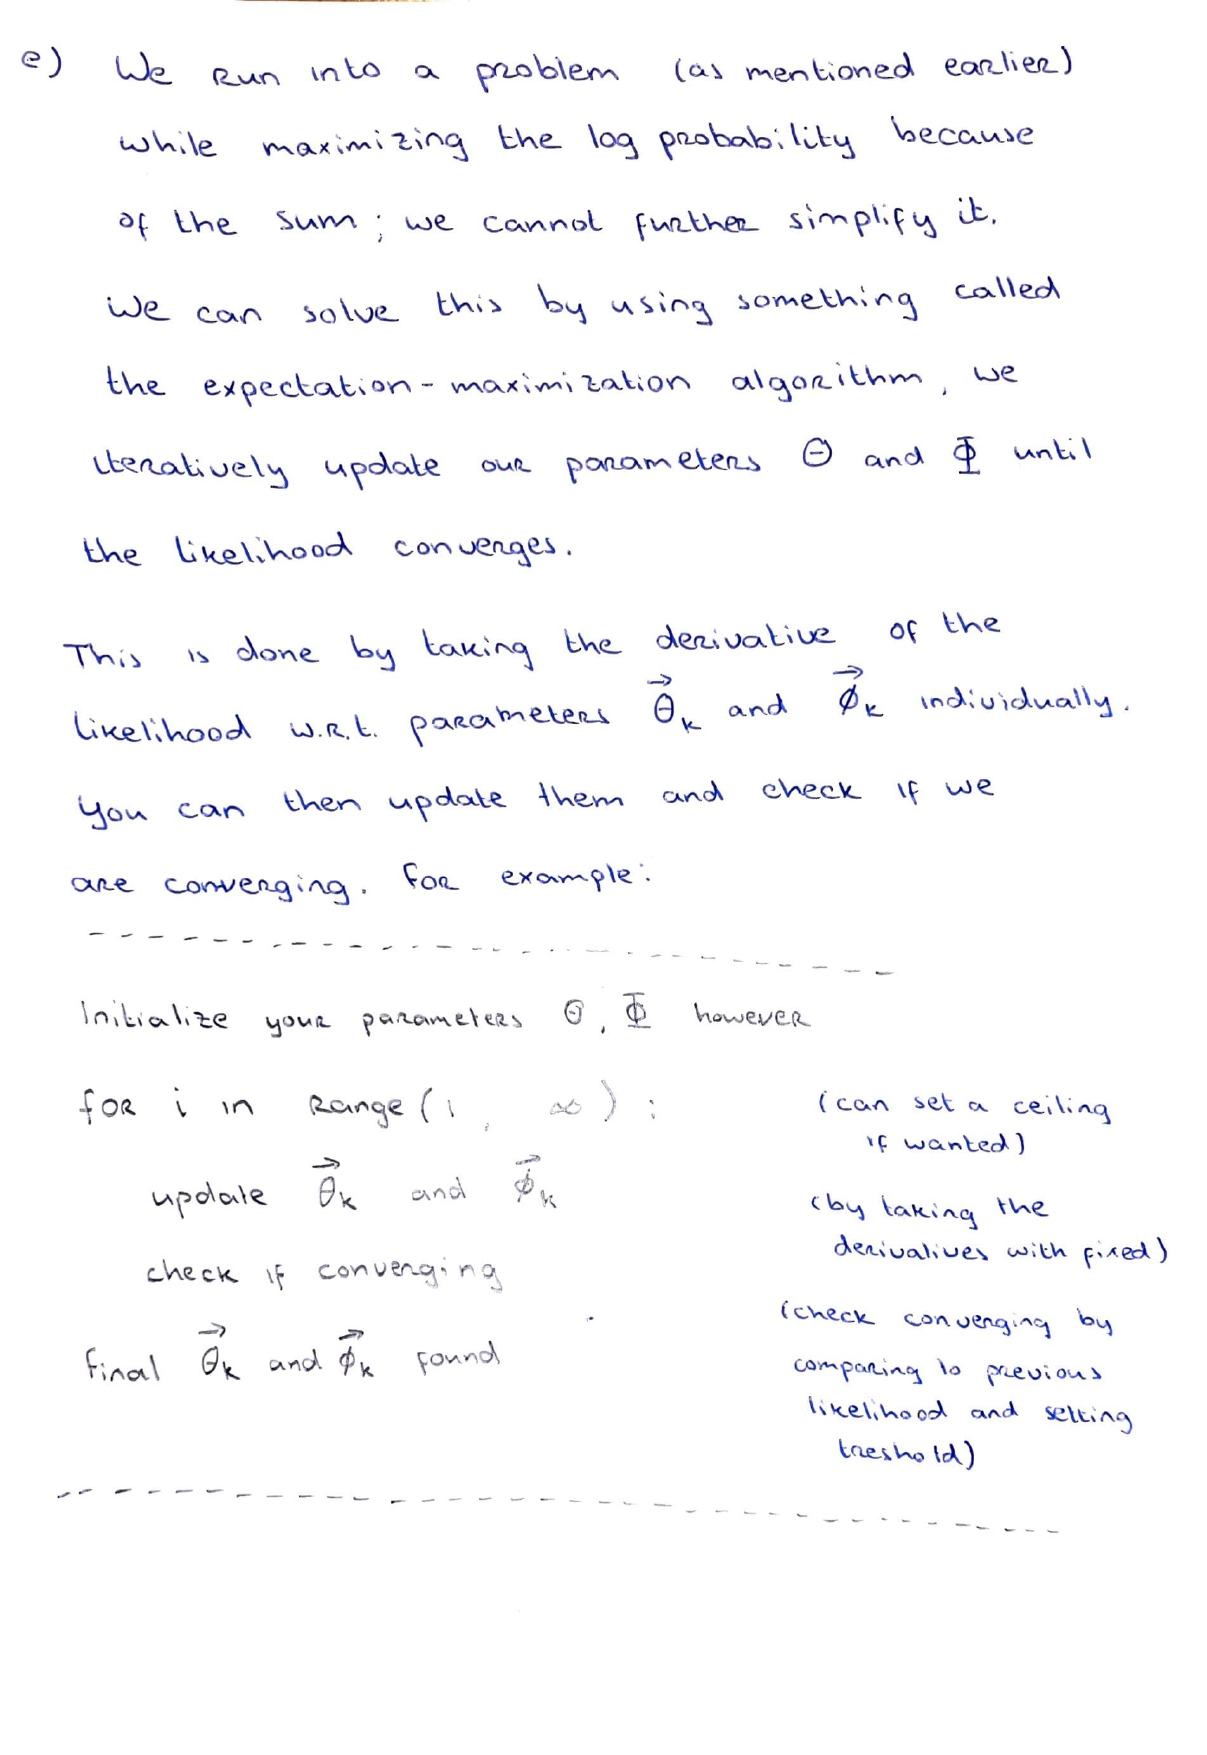 e) We run into a problem (as mentioned earlier)
while maximizing the log probability because
of the sum; we cannot further simplify it.
We can solve this by using something called
the expectation-maximization algorithm, we
iteratively update our parameters Θ and Φ until
the likelihood converges.
This is done by taking the derivative of the
likelihood w.r.t. parameters θ⃗ₖ and ϕ⃗ₖ individually.
You can then update them and check if we
are converging. For example:
Initialize your parameters Θ, Φ however
for i in range(1, ∞):
(can set a ceiling
if wanted)
update θ⃗ₖ and ϕ⃗ₖ
(by taking the
derivatives with fixed)
check if converging
(check converging by
comparing to previous
likelihood and setting
treshold)
final θ⃗ₖ and ϕ⃗ₖ found